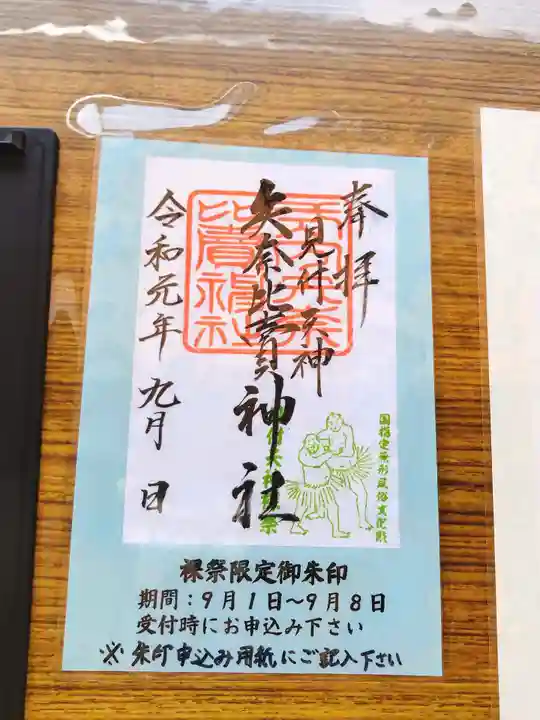 奉拝
見付天神
矢奈比賣神社
令和元年 九月 日
矢奈比賣神社
見付天神裸祭
国指定無形民俗文化財
裸祭限定御朱印
期間：9月1日～9月8日
受付時にお申込み下さい
※朱印申込み用紙にご記入下さい